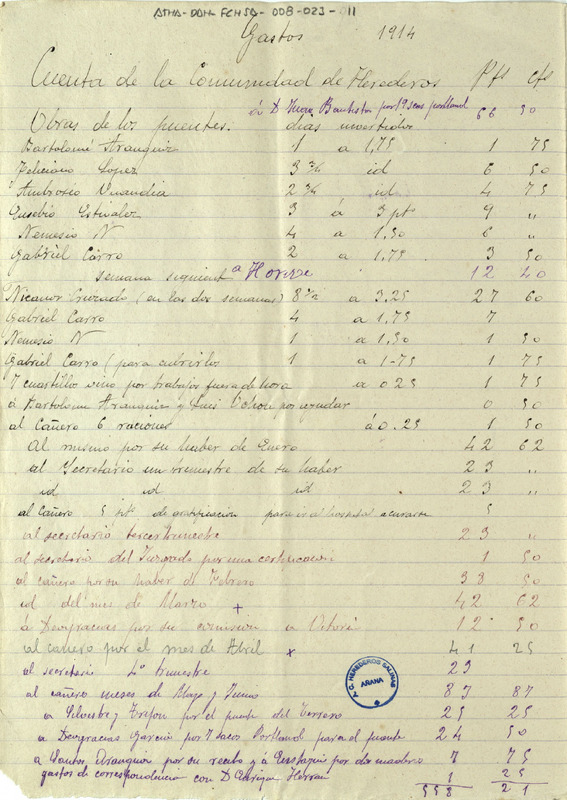 ATHA-DAH-FCHSA-008-023-011
Gastos 1914
Cuenta de la Comunidad de Herederos Pts cts
á D Juan Bautista por 19 sacos portland 66 50
Obras de los puentes. dias invertidos
Bartolomé Aranguiz 1 a 1,75 1 75
Feliciano Lopez 3 3/4 id 6 50
Ambrosio 2 3/4 id 4 75
Eusebio Estivalez 3 á 3 pts 9 "
Nemesio N 4 a 1,50 6 "
Gabriel Carro 2 a 1,75 3 50
semana siguient 12 40
Nicanor (en las dos semanas) 8 1/2 a 3.25 27 60
Gabriel Carro 4 a 1,75 7
Nemesio N 1 a 1,50 1 50
Gabriel Carro (para cubrirlos 1 a 1-75 1 75
7 cuartillos vino por trabajos fuera de hora a 0 25 1 75
á Bartolome Aranguiz y Luis Ochoa por ayudar 0 50
al Cañero 6 raciones á 0.25 1 50
Al mismo por su haber de Enero 42 62
al Secretario un trimestre de su haber 23 "
id id id 23 "
al Cañero 5 pts de gratificación para ir al hospital a curarse 5
al secretario tercer trimestre 23 "
al secretario del Juzgado por una certificacion 1 50
al cañero por su haber de Febrero 38 50
id del mes de Marzo + 42 62
á Deogracias por su comision a Vitoria 12 50
al cañero por el mes de Abril x 41 25
al secretario 4º trimestre 23
al cañero meses de Mayo y Junio 87 87
a Silvestre y Trifon por el puente del Terrero 25 25
a Deogracias Garcia por 7 sacos Portland para el puente 24 50
a Santos Aranguiz por su recibo y a Eustaquio por dos maderos 7 75
gastos de correspondencia con D Enrique Herran 1 25
558 21
C. HEREDEROS SALINAS
AÑANA